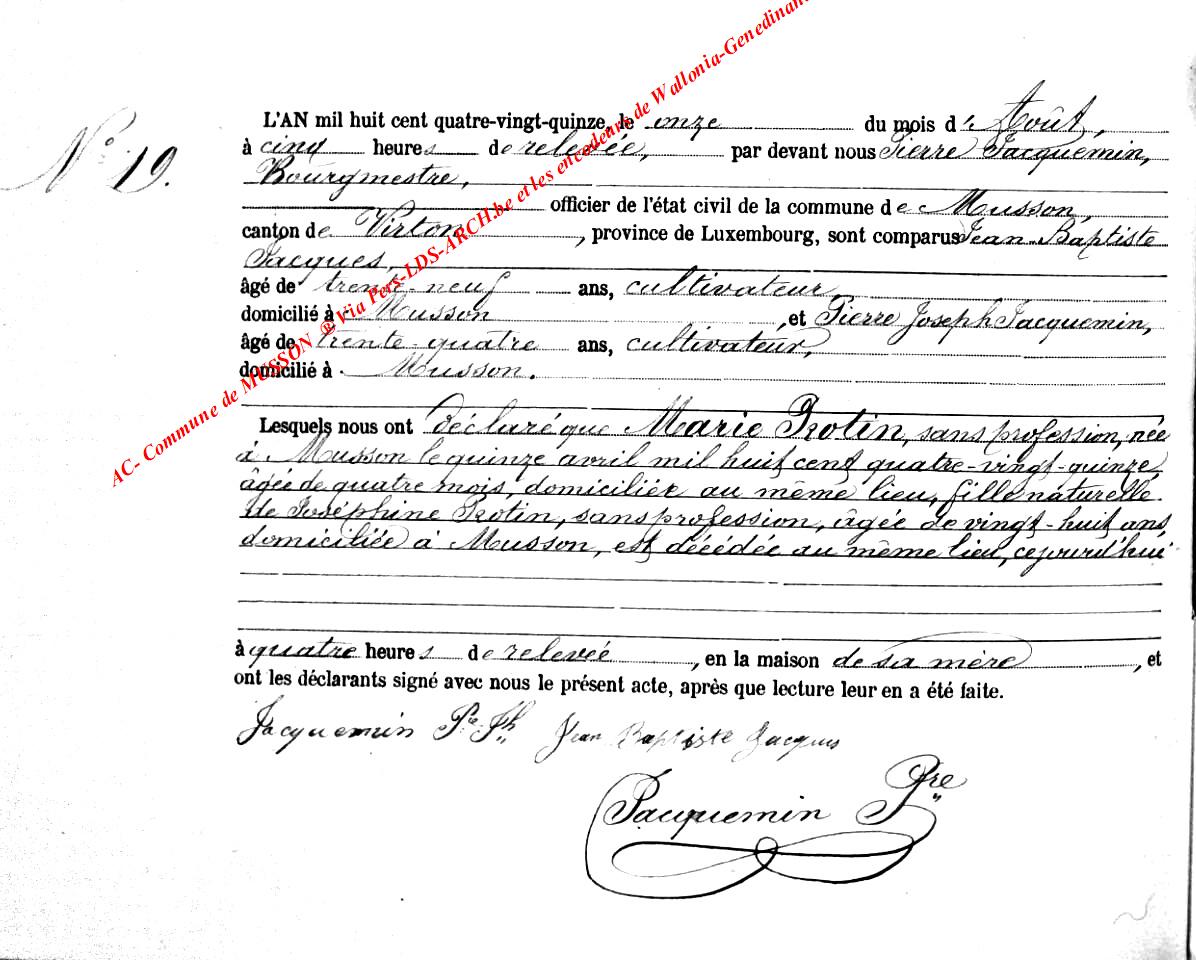 AC- Commune de MUSSON ® Via Pers-LDS-ARCH.be et les encodeurs de Wallonia-Genedinant
N° 19.
L'AN mil huit cent quatre-vingt-quinze, le onze du mois d' Août,
à cinq heures de relevée, par devant nous Pierre Jacquemin,
Bourgmestre,
officier de l'état civil de la commune de Musson,
canton de Virton, province de Luxembourg, sont comparus Jean-Baptiste
Jacques,
âgé de trente-neuf ans, cultivateur
domicilié à Musson, et Pierre Joseph Jacquemin,
âgé de trente-quatre ans, cultivateur,
domicilié à Musson.
Lesquels nous ont déclaré que Marie Rotin, sans profession, née
à Musson le quinze avril mil huit cent quatre-vingt-quinze,
âgée de quatre mois, domiciliée au même lieu, fille naturelle
de Joséphine Rotin, sans profession, âgée de vingt-huit ans,
domiciliée à Musson, est décédée au même lieu, cejourd'hui
à quatre heures de relevée, en la maison de sa mère, et
ont les déclarants signé avec nous le présent acte, après que lecture leur en a été faite.
Jacquemin Pre Jh Jean Baptiste Jacques
Jacquemin Pre